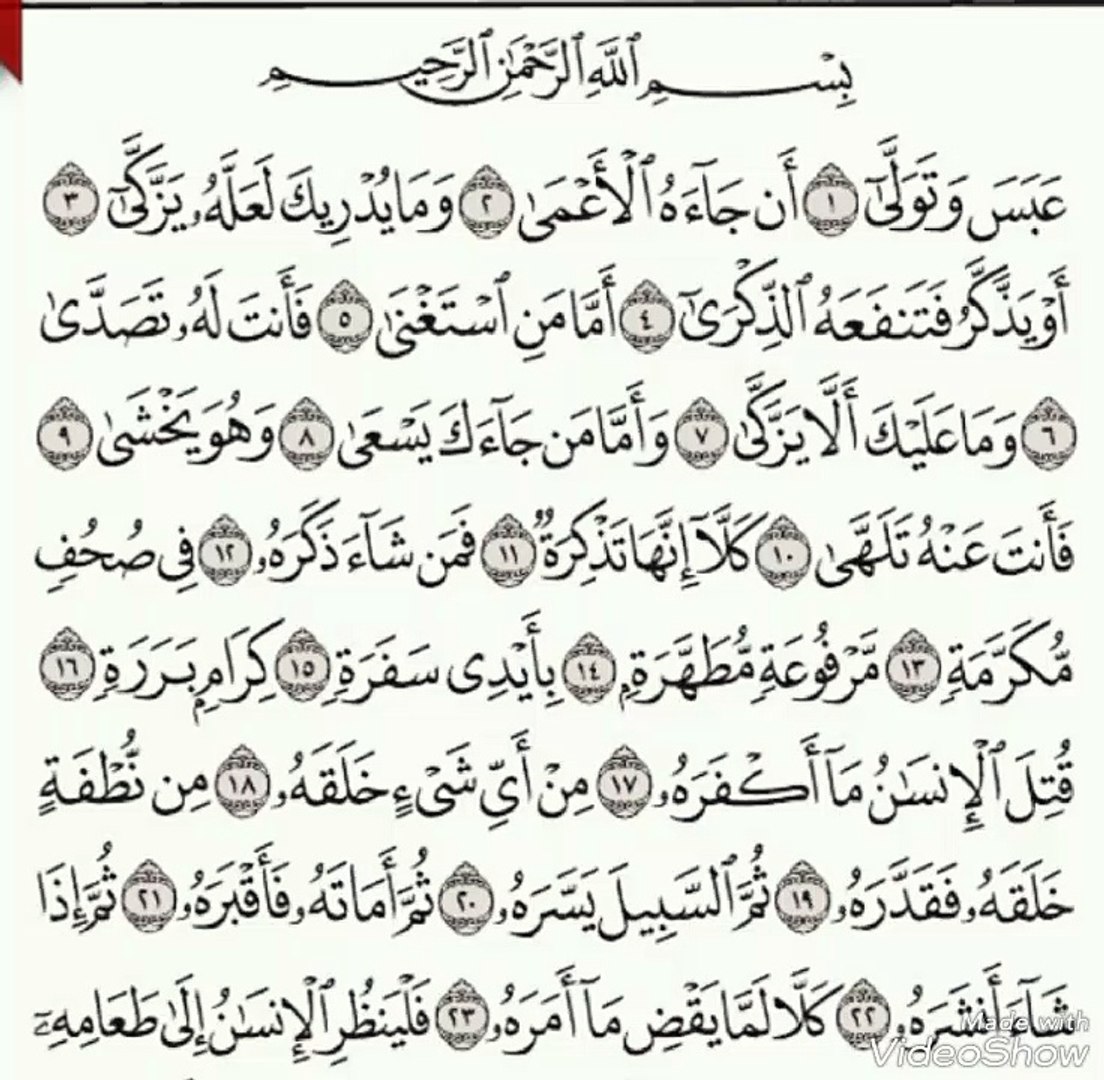 بِسْمِ ٱللَّهِ ٱلرَّحْمَٰنِ ٱلرَّحِيمِ
عَبَسَ وَتَوَلَّىٰٓ ١ أَن جَآءَهُ ٱلْأَعْمَىٰ ٢ وَمَا يُدْرِيكَ لَعَلَّهُۥ يَزَّكَّىٰٓ ٣
أَوْ يَذَّكَّرُ فَتَنفَعَهُ ٱلذِّكْرَىٰٓ ٤ أَمَّا مَنِ ٱسْتَغْنَىٰ ٥ فَأَنتَ لَهُۥ تَصَدَّىٰ
٦ وَمَا عَلَيْكَ أَلَّا يَزَّكَّىٰ ٧ وَأَمَّا مَن جَآءَكَ يَسْعَىٰ ٨ وَهُوَ يَخْشَىٰ ٩
فَأَنتَ عَنْهُ تَلَهَّىٰ ١٠ كَلَّآ إِنَّهَا تَذْكِرَةٌ ١١ فَمَن شَآءَ ذَكَرَهُۥ ١٢ فِى صُحُفٍ
مُّكَرَّمَةٍ ١٣ مَّرْفُوعَةٍ مُّطَهَّرَةٍۭ ١٤ بِأَيْدِى سَفَرَةٍ ١٥ كِرَامٍۭ بَرَرَةٍ ١٦
قُتِلَ ٱلْإِنسَٰنُ مَآ أَكْفَرَهُۥ ١٧ مِنْ أَىِّ شَىْءٍ خَلَقَهُۥ ١٨ مِن نُّطْفَةٍ
خَلَقَهُۥ فَقَدَّرَهُۥ ١٩ ثُمَّ ٱلسَّبِيلَ يَسَّرَهُۥ ٢٠ ثُمَّ أَمَاتَهُۥ فَأَقْبَرَهُۥ ٢١ ثُمَّ إِذَا
شَآءَ أَنشَرَهُۥ ٢٢ كَلَّا لَمَّا يَقْضِ مَآ أَمَرَهُۥ ٢٣ فَلْيَنظُرِ ٱلْإِنسَٰنُ إِلَىٰ طَعَامِهِۦٓ
Made with
VideoShow